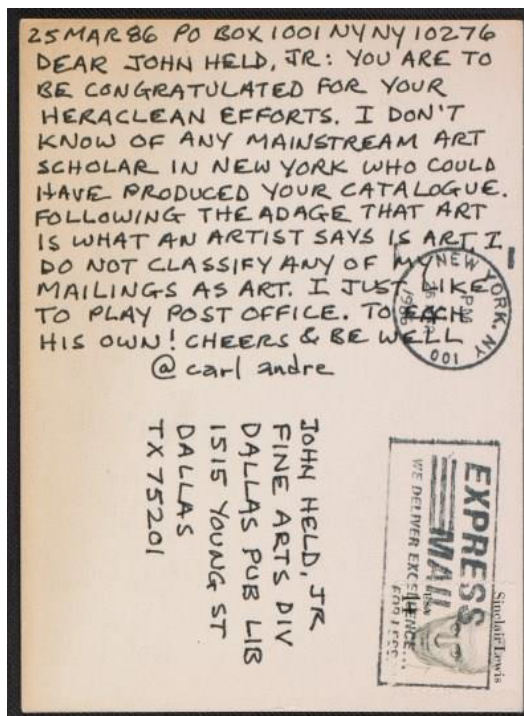 25 MAR 86 PO BOX 1001 NY NY 10276
DEAR JOHN HELD, JR: YOU ARE TO
BE CONGRATULATED FOR YOUR
HERACLEAN EFFORTS. I DON'T
KNOW OF ANY MAINSTREAM ART
SCHOLAR IN NEW YORK WHO COULD
HAVE PRODUCED YOUR CATALOGUE.
FOLLOWING THE ADAGE THAT ART
IS WHAT AN ARTIST SAYS IS ART, I
DO NOT CLASSIFY ANY OF MY
MAILINGS AS ART. I JUST LIKE
TO PLAY POST OFFICE. TO EACH
HIS OWN! CHEERS & BE WELL
@ carl andre
NEW YORK, NY 100
PM
1986
JOHN HELD, JR
FINE ARTS DIV
DALLAS PUB LIB
1515 YOUNG ST
DALLAS
TX 75201
Sinclair Lewis
EXPRESS
MAIL
WE DELIVER EXCELLENCE...
FOR LESS